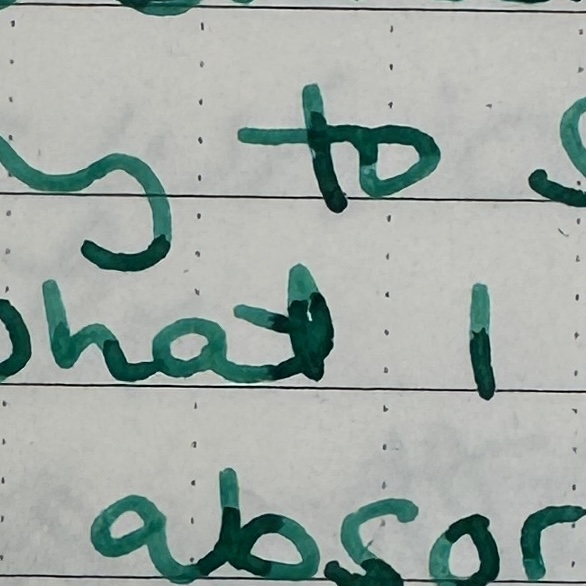 to
hat I
absor